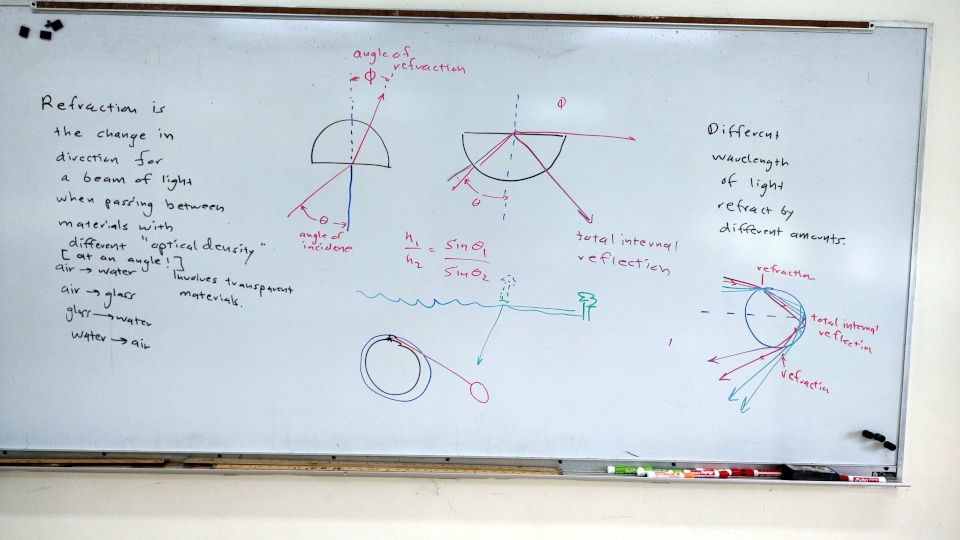 Refraction is
the change in
direction for
a beam of light
when passing between
materials with
different "optical density"
[at an angle!]
air → water
air → glass
glass → water
water → air
Involves transparent
materials.
angle of
refraction
Φ
θ
angle of
incidene
Φ
θ
total internal
reflection
n1/n2 = sinθ1/sinθ2
Different
wavelength
of light
refract by
different amounts.
refraction
total internal
reflection
refraction